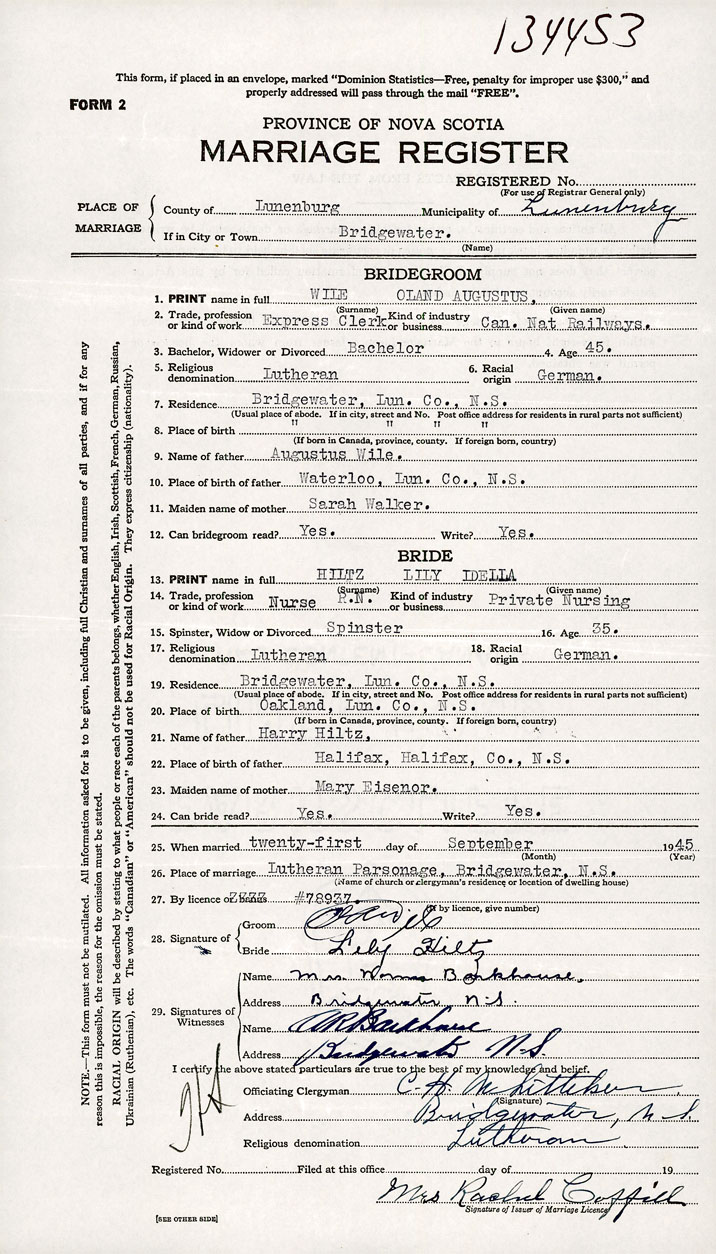 134453
This form, if placed in an envelope, marked “Dominion Statistics—Free, penalty for improper use $300,” and
properly addressed will pass through the mail “FREE”.
FORM 2
PROVINCE OF NOVA SCOTIA
MARRIAGE REGISTER
REGISTERED No.
(For use of Registrar General only)
PLACE OF MARRIAGE
County of Lunenburg Municipality of Lunenburg
If in City or Town Bridgewater.
(Name)
BRIDEGROOM
1. PRINT name in full WILE OLAND AUGUSTUS,
(Surname) (Given name)
2. Trade, profession or kind of work Express Clerk Kind of industry or business Can. Nat Railways.
3. Bachelor, Widower or Divorced Bachelor 4. Age 45.
5. Religious denomination Lutheran 6. Racial origin German.
7. Residence Bridgewater, Lun. Co., N.S.
(Usual place of abode. If in city, street and No. Post office address for residents in rural parts not sufficient)
8. Place of birth " " " "
(If born in Canada, province, county. If foreign born, country)
9. Name of father Augustus Wile.
10. Place of birth of father Waterloo, Lun. Co., N.S.
11. Maiden name of mother Sarah Walker.
12. Can bridegroom read? Yes. Write? Yes.
BRIDE
13. PRINT name in full HILTZ LILY IDELLA
(Surname) (Given name)
14. Trade, profession or kind of work Nurse R.N. Kind of industry or business Private Nursing
15. Spinster, Widow or Divorced Spinster 16. Age 35.
17. Religious denomination Lutheran 18. Racial origin German.
19. Residence Bridgewater, Lun. Co., N.S.
(Usual place of abode. If in city, street and No. Post office address for residents in rural parts not sufficient)
20. Place of birth Oakland, Lun. Co., N.S.
(If born in Canada, province, county. If foreign born, country)
21. Name of father Harry Hiltz,
22. Place of birth of father Halifax, Halifax, Co., N.S.
23. Maiden name of mother Mary Eisenor.
24. Can bride read? Yes. Write? Yes.
25. When married twenty-first day of September 1945
(Month) (Year)
26. Place of marriage Lutheran Parsonage, Bridgewater, N.S.
(Name of church or clergyman's residence or location of dwelling house)
27. By licence or banns #78937.
(If by licence, give number)
28. Signature of
Groom O A Wile
Bride Lily Hiltz
29. Signatures of Witnesses
Name Mrs. Norma Barkhouse.
Address Bridgewater N.S.
Name AR Barkhouse
Address Bridgewater N.S.
I certify the above stated particulars are to the best of my knowledge and belief.
Officiating Clergyman C. H. Whitteker.
(Signature)
Address Bridgewater, N.S.
Religious denomination Lutheran
Registered No. Filed at this office day of 19
Mrs Rachel Coffill
Signature of Issuer of Marriage Licence
[SEE OTHER SIDE]
NOTE.—This form must not be mutilated. All information asked for is to be given, including full Christian and surnames of all parties, and if for any
reason this is impossible, the reason for the omission must be stated.
RACIAL ORIGIN will be described by stating to what people or race each of the parents belongs, whether English, Irish, Scottish, French, German, Russian,
Ukrainian (Ruthenian), etc. The words “Canadian” or “American” should not be used for Racial Origin. They express citizenship (nationality).